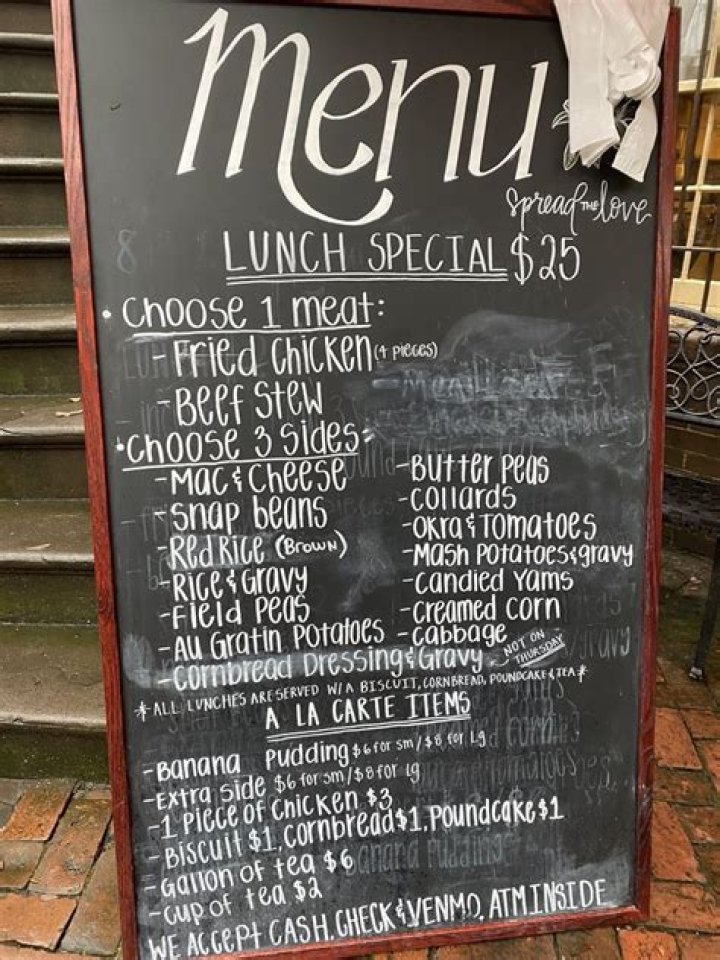 Menu
Spread THE love
LUNCH SPECIAL $25
• Choose 1 meat:
- Fried Chicken (4 pieces)
- Beef Stew
• Choose 3 Sides:
- Mac & Cheese
- Snap beans
- Red Rice (Brown)
- Rice & Gravy
- Field Peas
- Au Gratin Potatoes
- Cornbread Dressing & Gravy
- Butter Peas
- Collards
- Okra & Tomatoes
- Mash Potatoes & gravy
- Candied Yams
- Creamed Corn
- Cabbage
NOT ON THURSDAY
* ALL LUNCHES ARE SERVED W/ A BISCUIT, CORNBREAD, POUNDCAKE & TEA *
A LA CARTE ITEMS
- Banana Pudding $6 for sm / $8 for Lg
- Extra side $6 for sm / $8 for lg
- 1 Piece of Chicken $3
- Biscuit $1, Cornbread $1, Poundcake $1
- Gallon of tea $6
- Cup of tea $2
WE ACCEPT CASH, CHECK & VENMO, ATM INSIDE